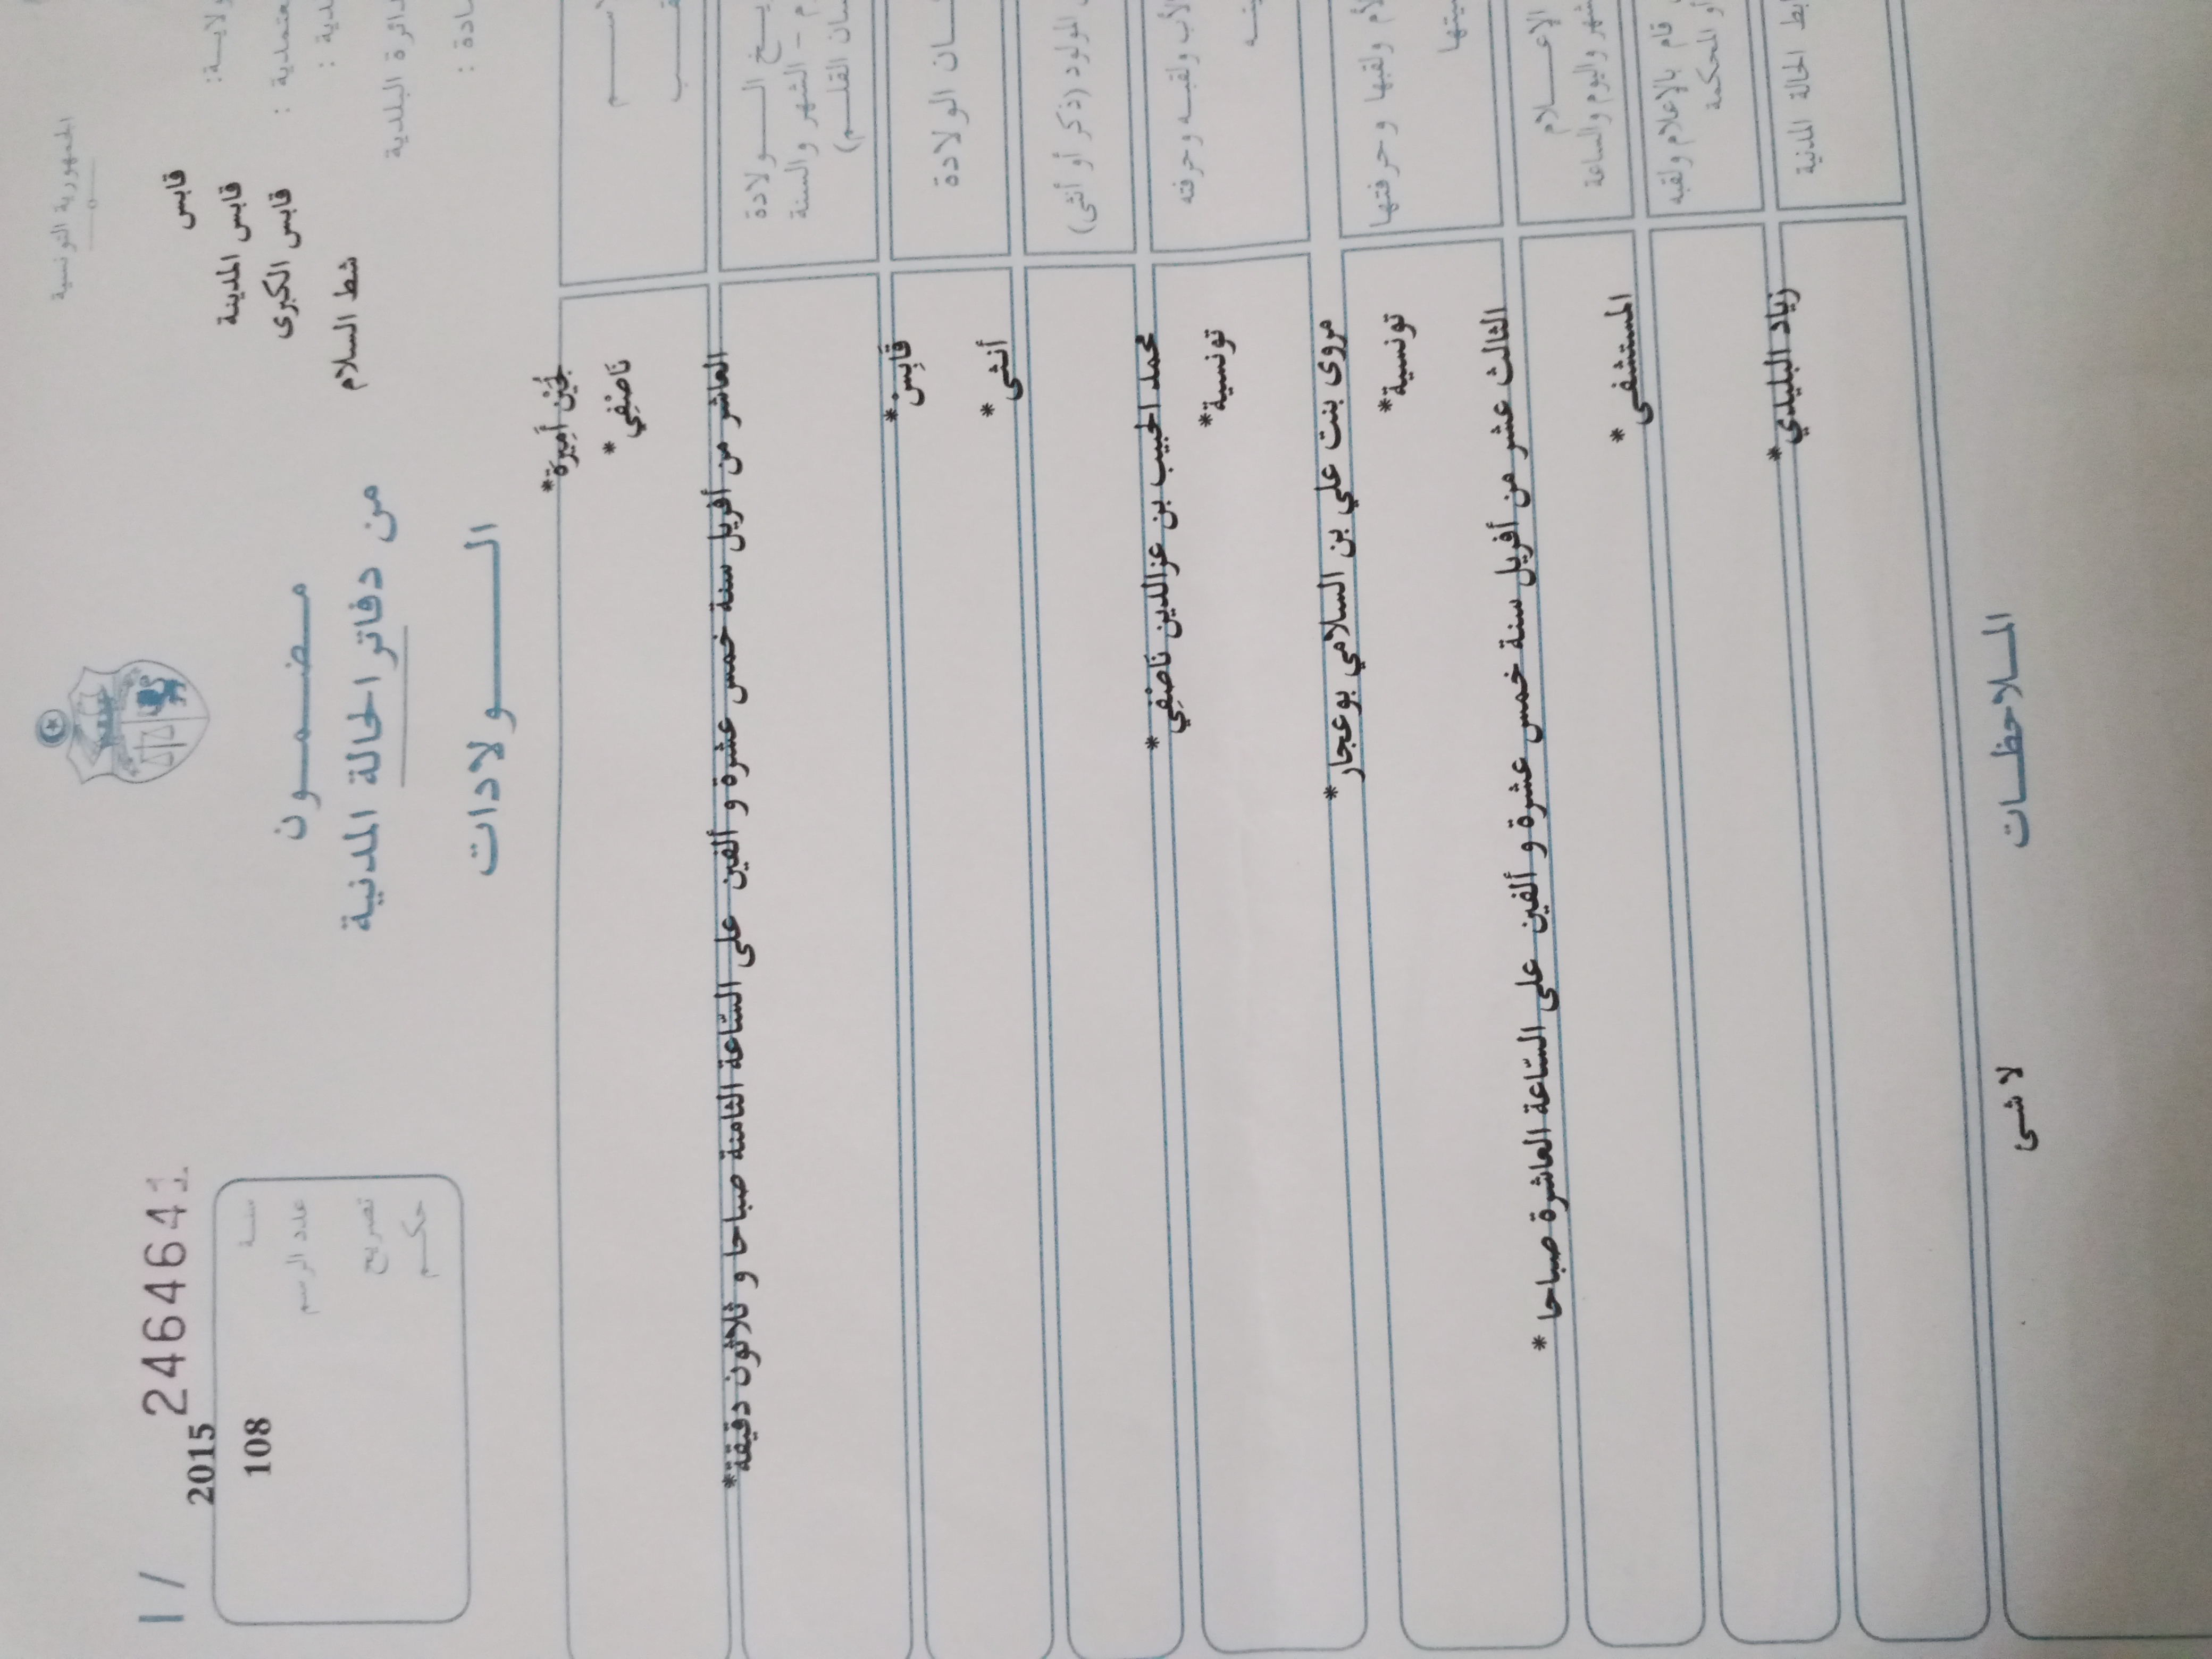 الجمهورية التونسية
ولايـة: قابس
عتمدية : قابس المدينة
دية : قابس الكبرى
دائرة البلدية شط السلام
ادة :
مـضـمـــون
من دفاتر الحالة المدنية
الــــــولادات
I / 2464641
سنـة 2015
عدد الرسم 108
تصريح
حكـم
لُجَيْن أَمِيرَة*
نَاصْفِي *
يـخ الـــولادة
م - الشهر والسنة
سان القلـم)
العاشر من أفريل سنة خمس عشرة و ألفين على السّاعة الثامنة صباحا و ثلاثون دقيقة*
ـان الولادة
قَابِس*
المولود (ذكر أو أنثى)
أنثى *
الأب ولقبـه وحرفته
محمد الحبيب بن عزالدين نَاصْفِي *
تونسية*
لأم ولقبها وحرفتها
مروى بنت علي بن السلامي بوعجار *
تونسية*
الإعـــلام
شهر واليوم والساعة
الثالث عشر من أفريل سنة خمس عشرة و ألفين على السّاعة العاشرة صباحا *
قام بالإعلام ولقبه
أو المحكمة
المستشفى *
بط الحالة المدنية
زياد البليدي *
المـلاحظـــات
لا شىء